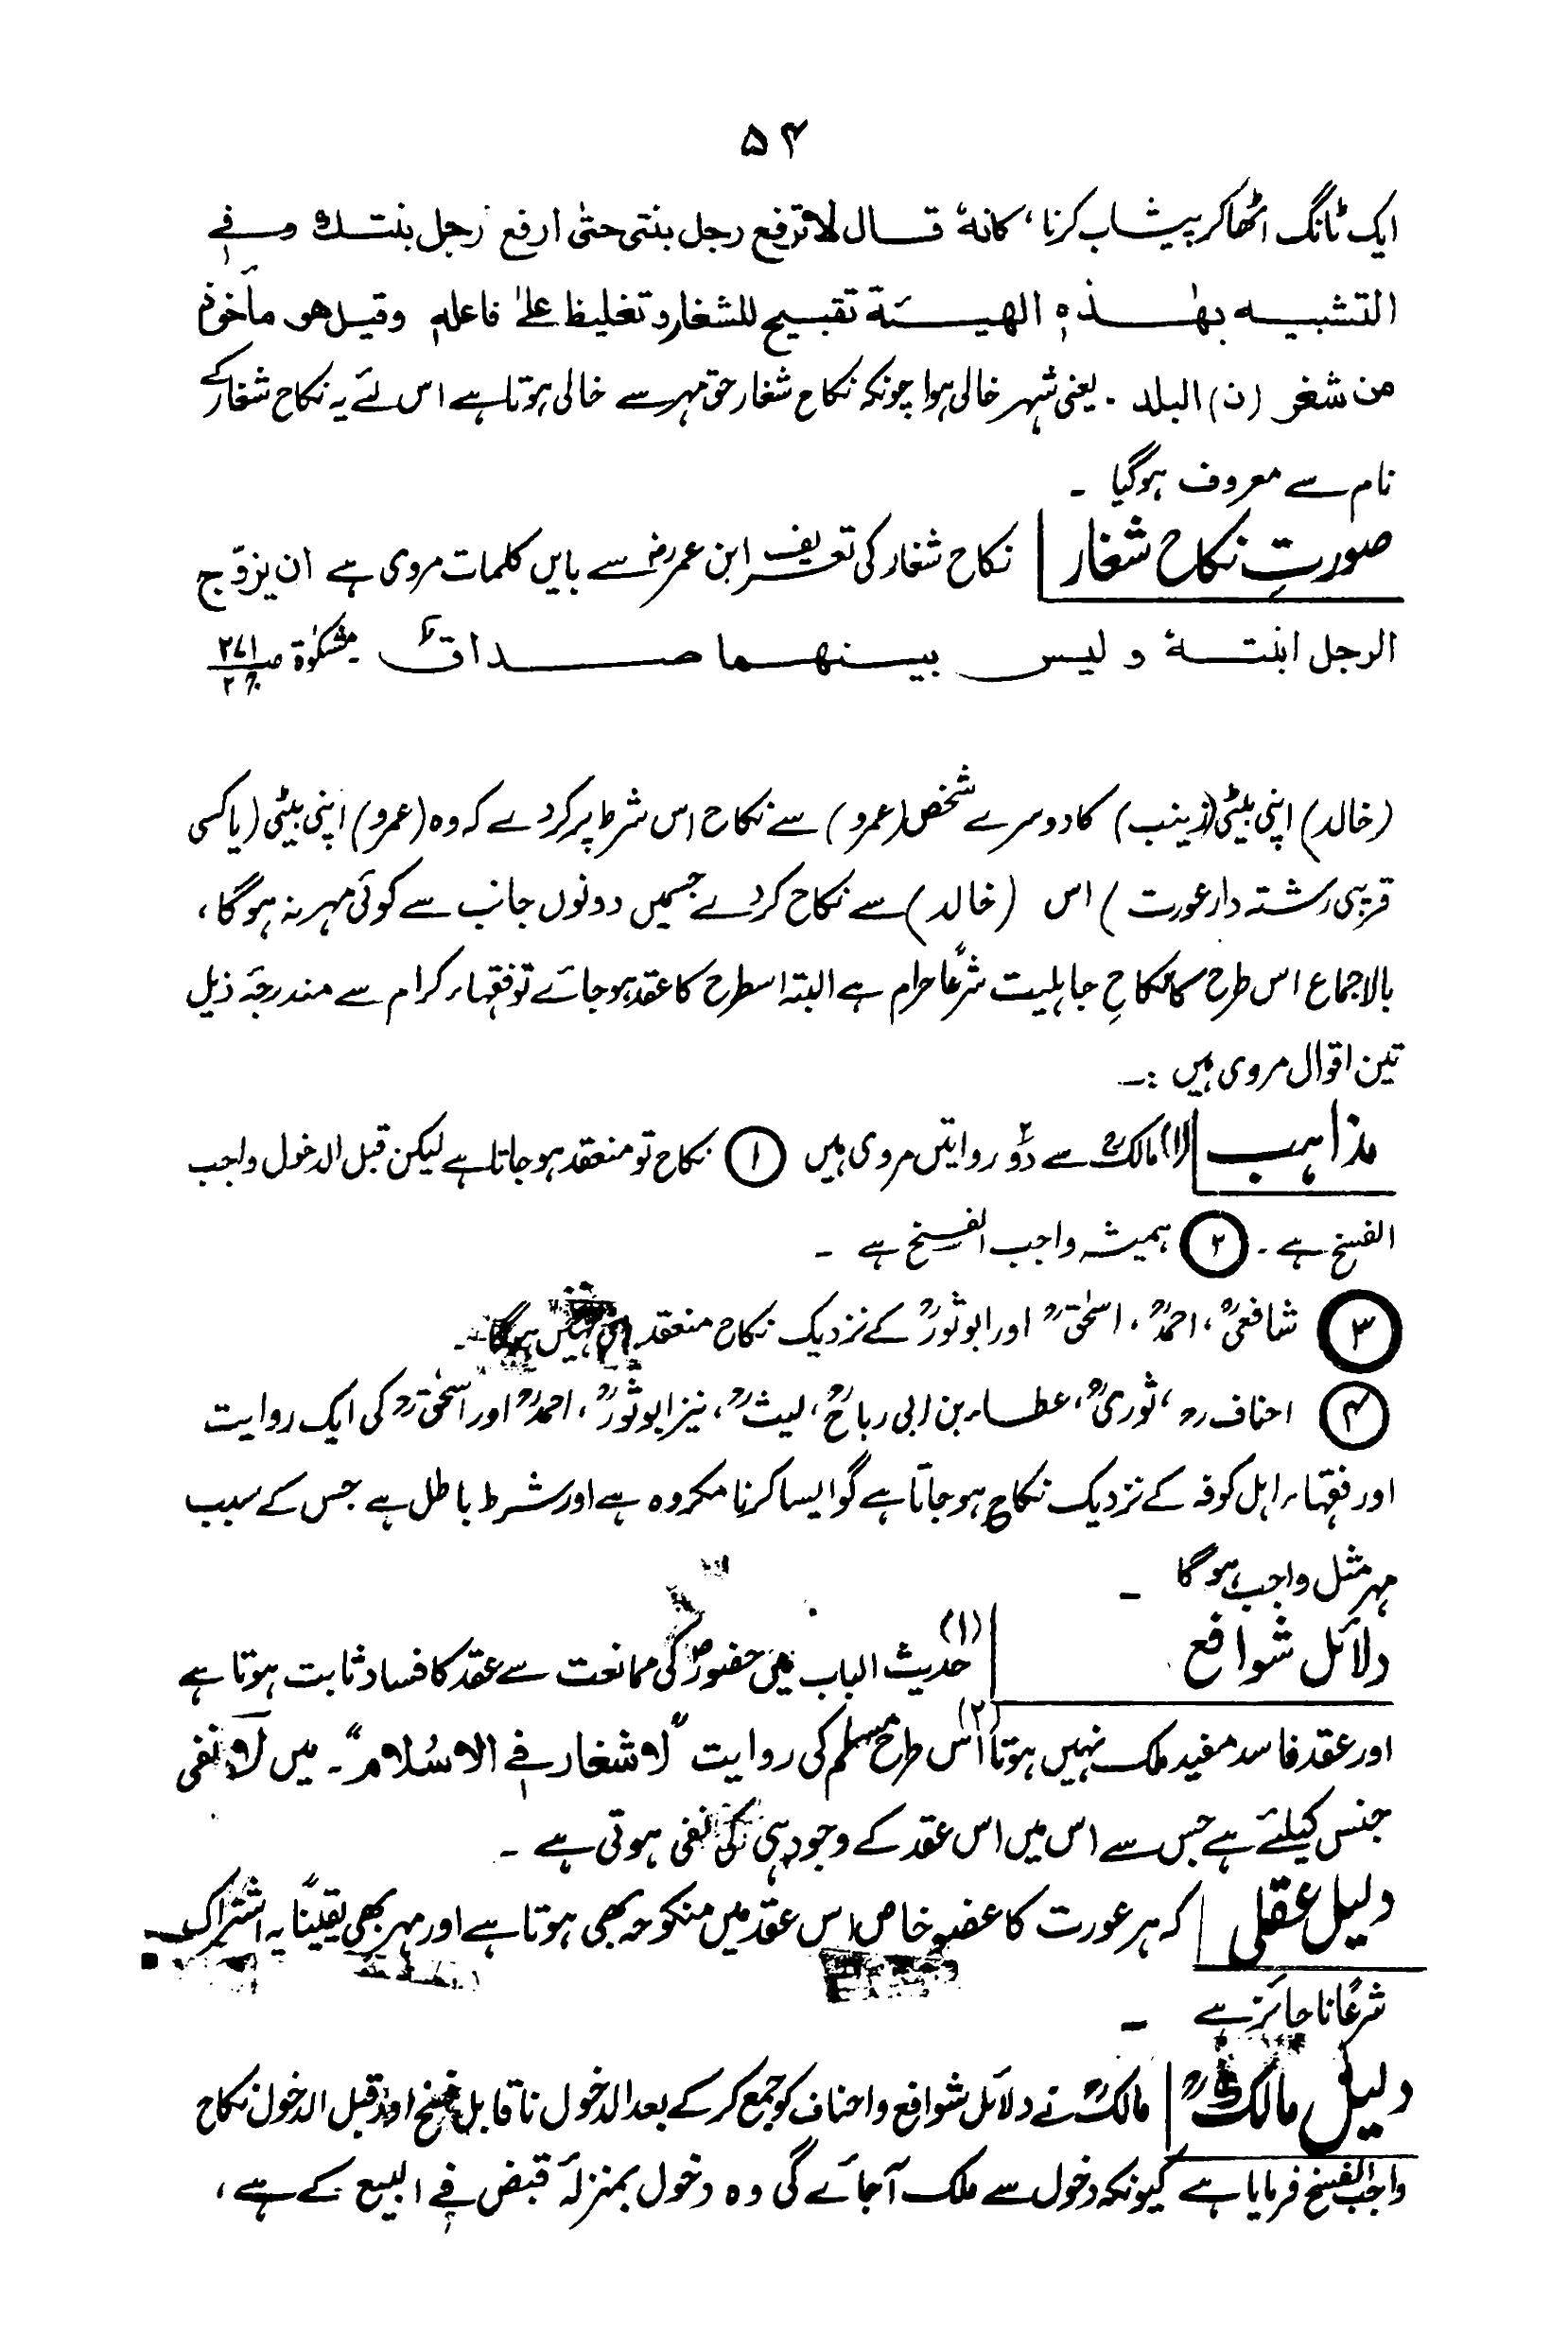 ۵۴
ایک ٹانگ اٹھاکر پیشاب کرنا، کانہٗ قال لا ترفع رجل بنتی حتٰی ارفع رجل بنتك وفی
التشبیہ بھٰذہ الھیئۃ تقبیح للشغار و تغلیظ علیٰ فاعلہ وقیل ھو مأخوذ
من شغر (ن) البلد ۔ یعنی شہر خالی ہوا چونکہ نکاح شغار حق مہر سے خالی ہوتا ہے اس لئے یہ نکاح شغار کے
نام سے معروف ہوگیا ۔
صورتِ نکاح شغار | نکاح شغار کی تعریف ابن عمرؓ سے بایں کلمات مروی ہے ان یزوّج
الرجل ابنتہٗ و لیس بینھما صداقٌ ۔ مشکوٰۃ صـ ۲۷۱/۲ج
(خالد) اپنی بیٹی (زینب) کا دوسرے شخص (عمرو) سے نکاح اس شرط پر کردے کہ وہ (عمرو) اپنی بیٹی (یا کسی
قریبی رشتہ دار عورت) اس (خالد) سے نکاح کردے جسمیں دونوں جانب سے کوئی مہر نہ ہوگا،
بالاجماع اس طرح کا نکاحِ جاہلیت شرعًا حرام ہے البتہ اسطرح کا عقد ہوجائے تو فقہاء کرام سے مندرجۂ ذیل
تین اقوال مروی ہیں :ـ
مذاہب | (۱) مالکؒ سے دوؔ روایتیں مروی ہیں ① نکاح تو منعقد ہوجاتا ہے لیکن قبل الدخول واجب
الفسخ ہے ۔ ② ہمیشہ واجب الفسخ ہے ۔
③ شافعیؒ، احمدؒ، اسحٰقؒ اور ابو ثورؒ کے نزدیک نکاح منعقد نہیں ہوگا ۔
④ احناف رہ، ثوریؒ، عطاء بن ابی رباحؒ، لیثؒ، نیز ابو ثورؒ، احمدؒ اور اسحٰقؒ کی ایک روایت
اور فقہاء اہل کوفہ کے نزدیک نکاح ہوجاتا ہے گو ایسا کرنا مکروہ ہے اور شرط باطل ہے جس کے سبب
مہر مثل واجب ہوگا ۔
دلائل شوافع | (۱) حدیث الباب میں حضورؐ کی ممانعت سے عقد کا فساد ثابت ہوتا ہے
اور عقد فاسد مفید ملک نہیں ہوتا (۲) اس طرح مسلم کی روایت ”لا شغار فی الاسلام“۔ میں لا نفی
جنس کیلئے ہے جس سے اس میں اس عقد کے وجود ہی کی نفی ہوتی ہے ۔
دلیل عقلی | کہ ہر عورت کا عضو خاص اس عقد میں منکوحہ بھی ہوتا ہے اور مہر بھی یقینًا یہ اشتراک
شرعًا ناجائز ہے ۔
دلیل مالکؒ | مالکؒ نے دلائل شوافع و احناف کو جمع کرکے بعد الدخول ناقابل فسخ اور قبل الدخول نکاح
واجب الفسخ فرمایا ہے کیونکہ دخول سے ملک آجائے گی وہ دخول بمنزلہ قبض فی البیع کے ہے،